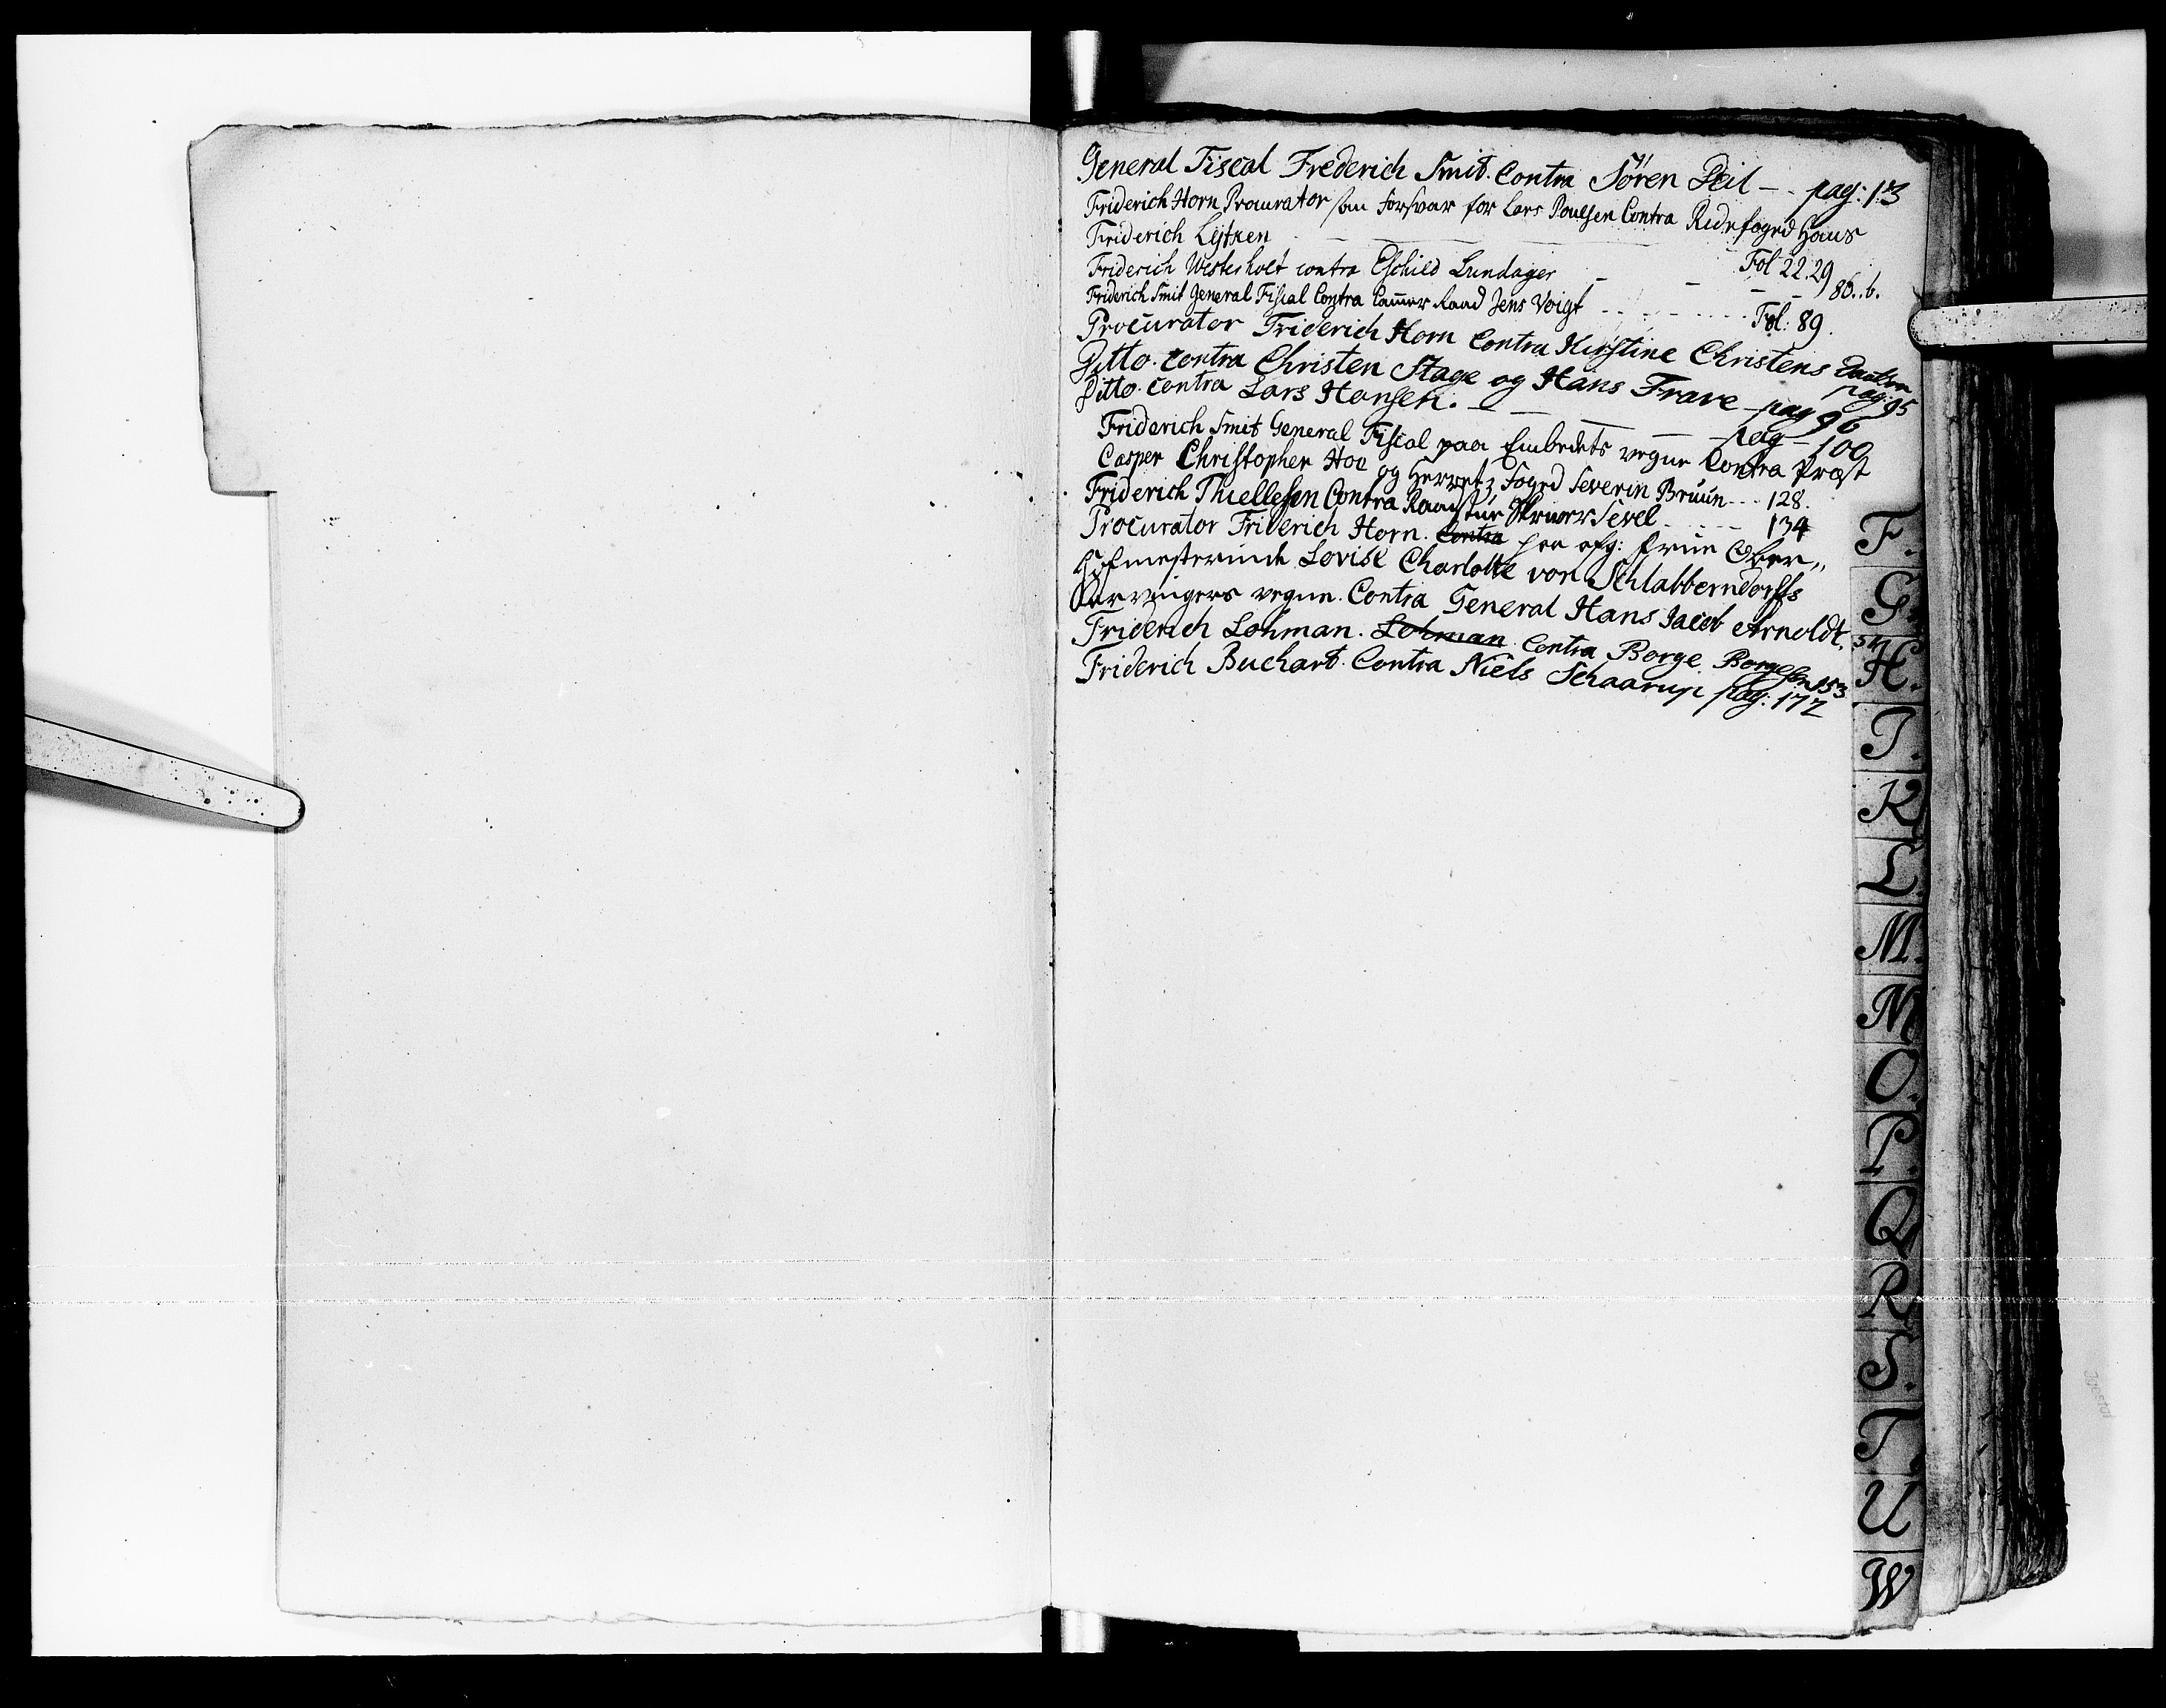 General Fiscal Frederich Smit. Contra Sören Peil - - pag: 13
Friderich Horn Procurator som Forsvar for Lars Poulsen Contra Ridefoged Hans
Friderich Lÿtken - - - Fol 22.29
Friderich Westerholt contra Eschild Lundager - - - - 86..b.
Friderich Smit General Fiscal Contra Cammer Raad Jens Voigt - - - - Fol: 89.
Procurator Friderich Horn Contra Kirstine Christens Daatter pag: 95
Ditto. contra Christen Stage og Hans Frave - pag 96
Ditto. contra Lars Hansen. - - - - pag - 100
Friderich Smit General Fiscal paa Embedets vegne Contra Præst
Casper Christopher Hoe og Herretz Foged Severin Bruun - - - 128.
Friderich Thiellesen Contra Raadstue Skriver Sevel - - - - 134
Procurator Friderich Horn. Contra paa afg: Frue Ober„
Hofmesterinde Lovise Charlotte von Schlabberndorffs
Arvingers vegne. Contra General Hans Jacob Arnoldt.
Friderich Lohman. Lohman. Contra Borge Borgesen 153
Friderich Buchart. Contra Niels Schaarup pag: 172
F.
G.
H.
I.
K
L
M.
N
O.
P.
Q
R
S.
T.
U
W